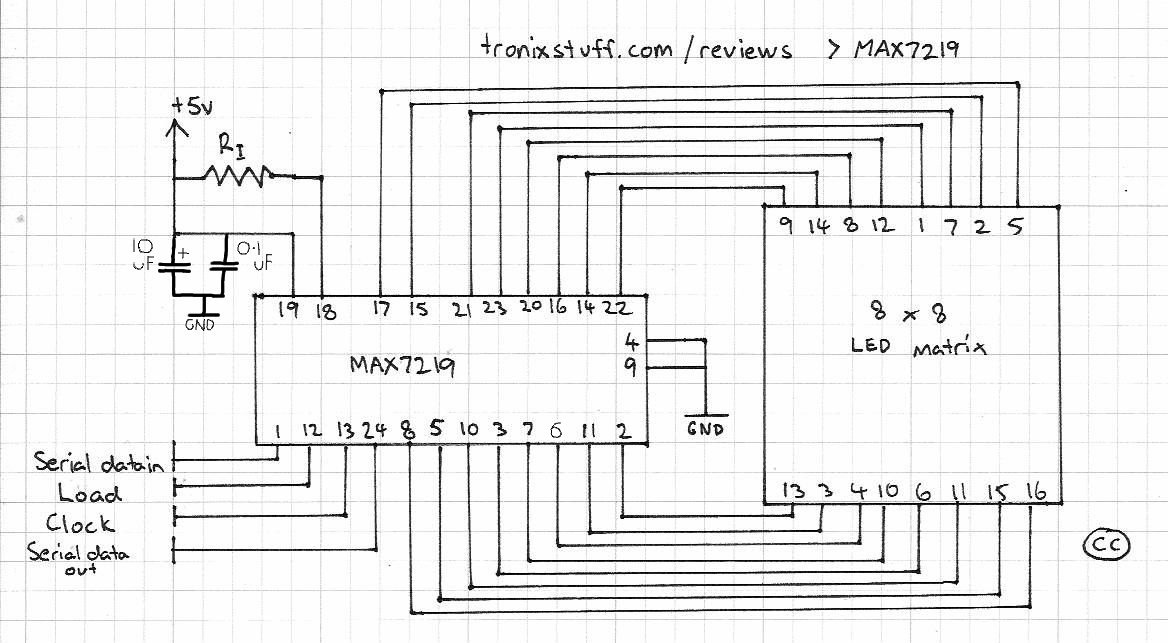 tronixstuff.com/reviews > MAX7219
+5v
RI
10 uF
+
0.1 uF
GND
19 18 17 15 21 23 20 16 14 22
4
9
MAX7219
GND
1 12 13 24 8 5 10 3 7 6 11 2
Serial data in
Load
Clock
Serial data
out
9 14 8 12 1 7 2 5
8 x 8
LED matrix
13 3 4 10 6 11 15 16
CC